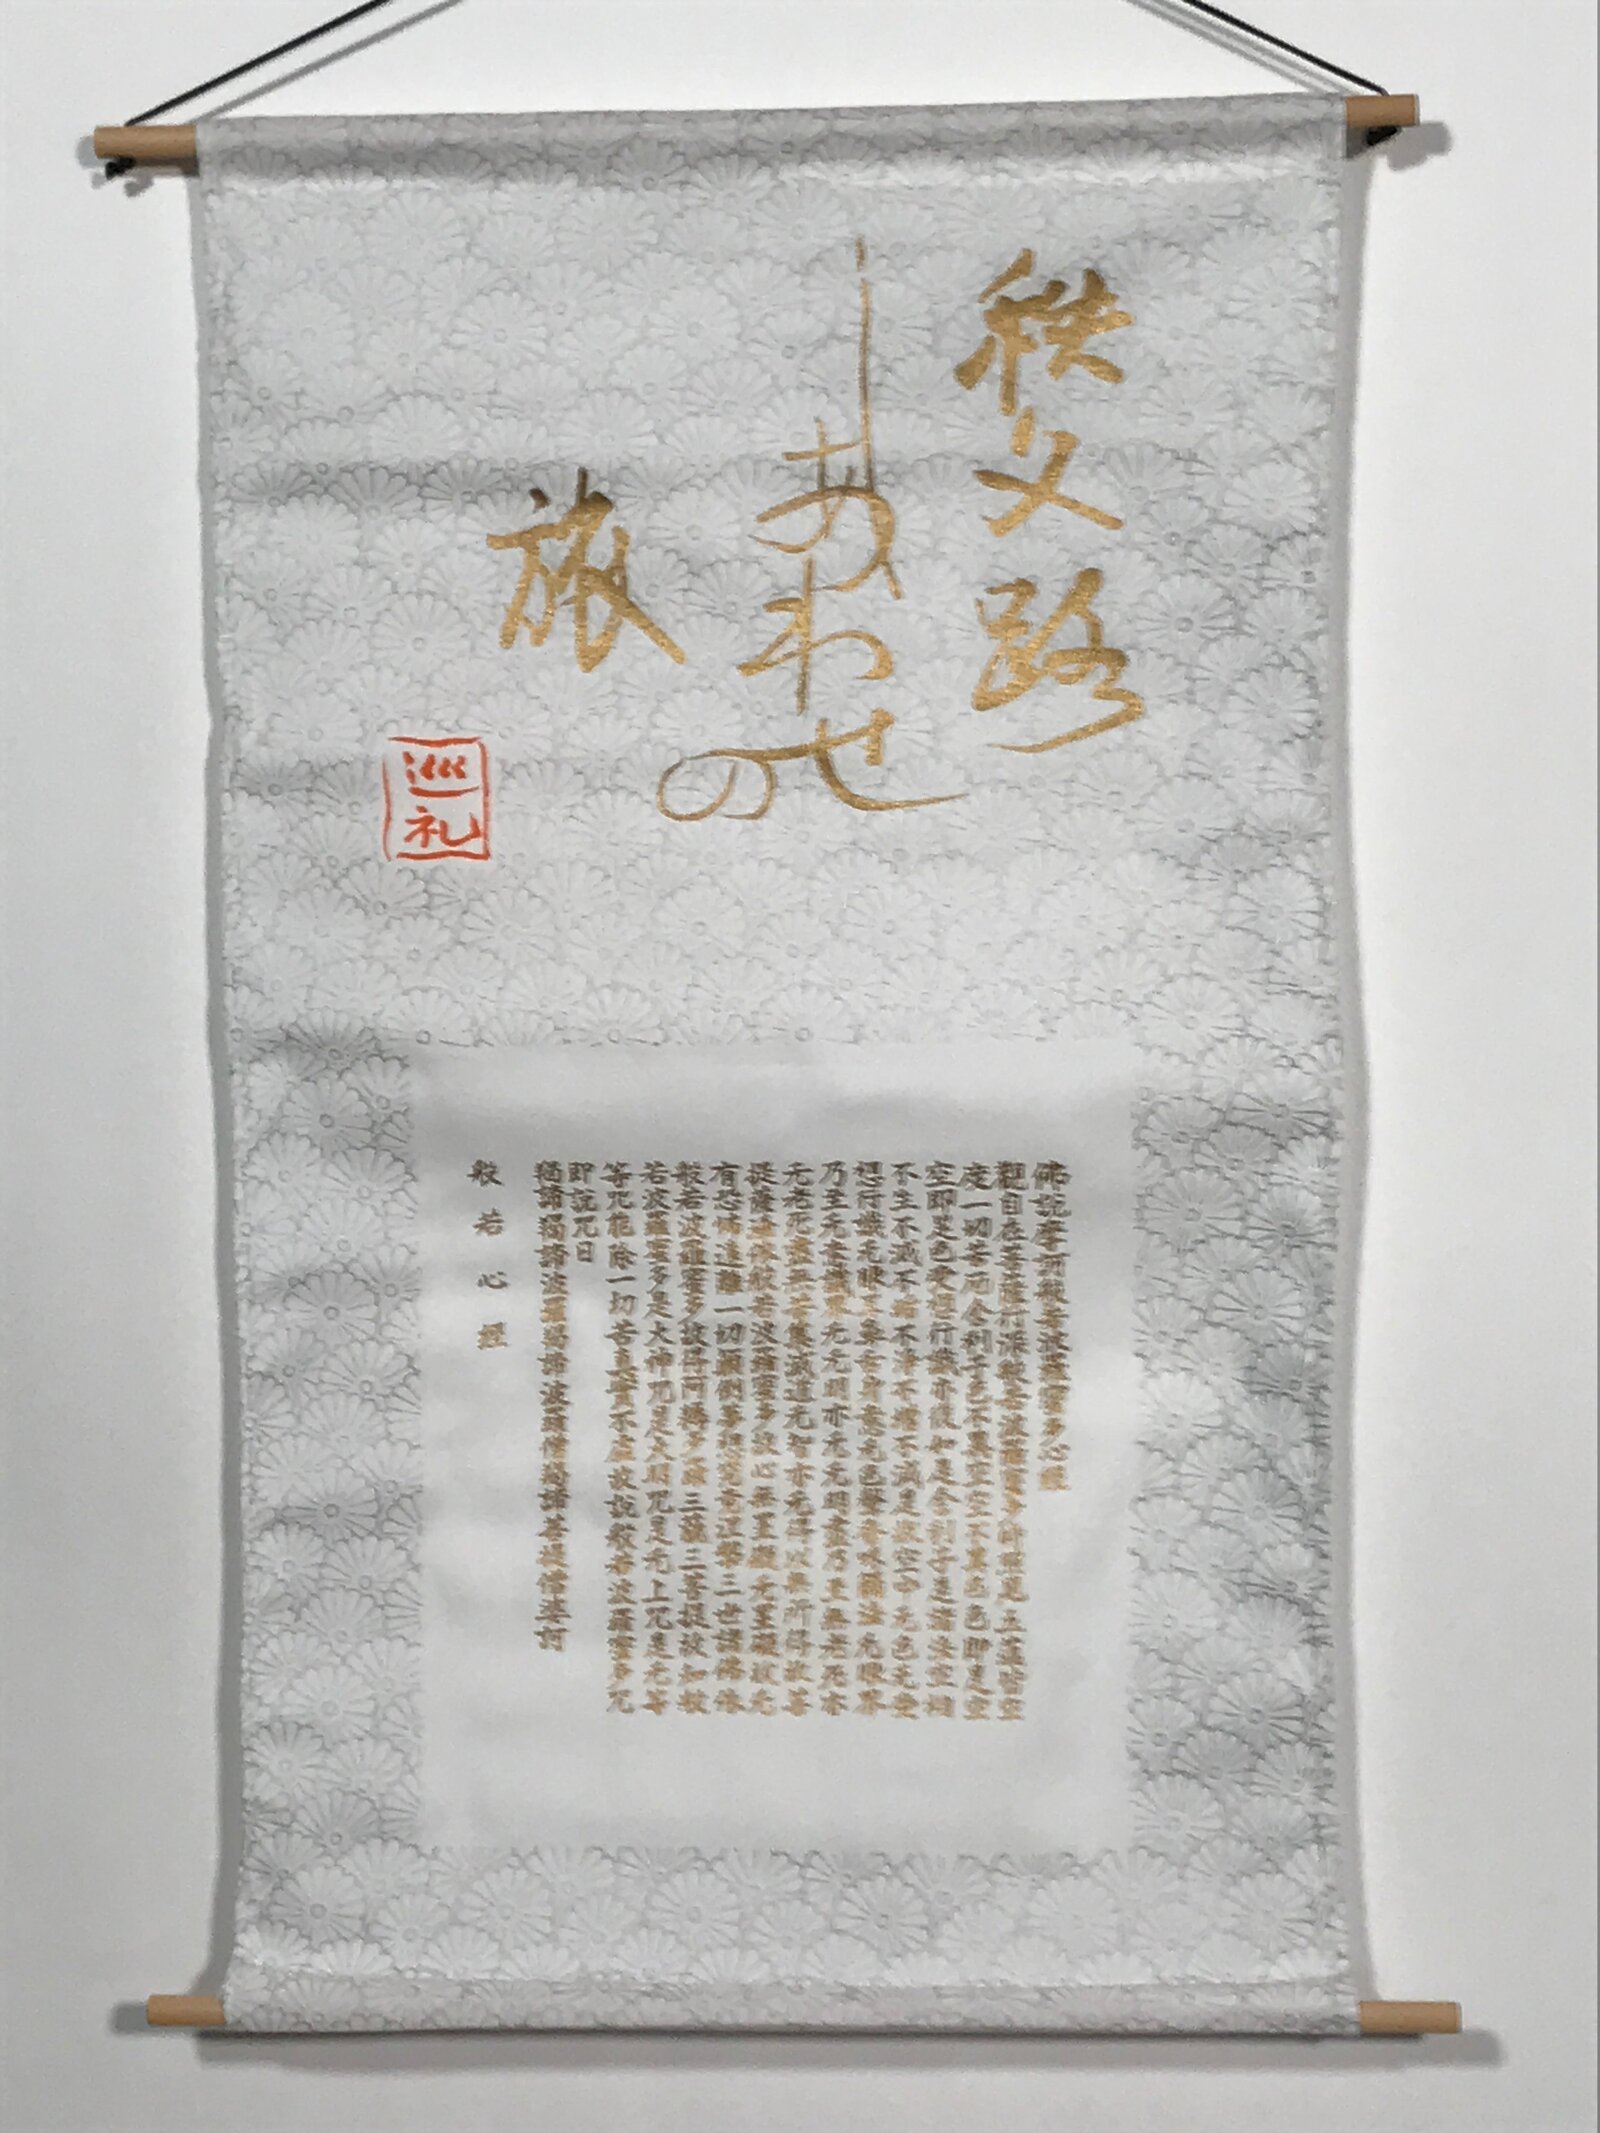 秩父路
しあわせの
旅
巡礼
佛説摩訶般若波羅蜜多心経
觀自在菩薩行深般若波羅蜜多時照見五蘊皆空
度一切苦厄舎利子色不異空空不異色色即是空
空即是色受想行識亦復如是舎利子是諸法空相
不生不滅不垢不浄不増不減是故空中无色无受
想行識无眼耳鼻舌身意无色聲香味觸法无眼界
乃至无意識界无无明亦无无明盡乃至無老死亦
无老死盡無苦集滅道无智亦无得以無所得故菩
提薩埵依般若波羅蜜多故心無罣礙无罣礙故无
有恐怖遠離一切顛倒夢想究竟涅槃三世諸佛依
般若波羅蜜多故得阿耨多羅三藐三菩提故知般
若波羅蜜多是大神咒是大明咒是无上咒是无等
等咒能除一切苦真實不虚故説般若波羅蜜多咒
即説咒曰
羯諦羯諦波羅羯諦波羅僧羯諦菩提僧莎訶
般若心經